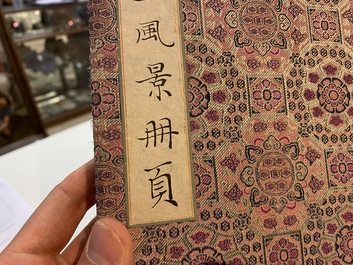 風景冊頁